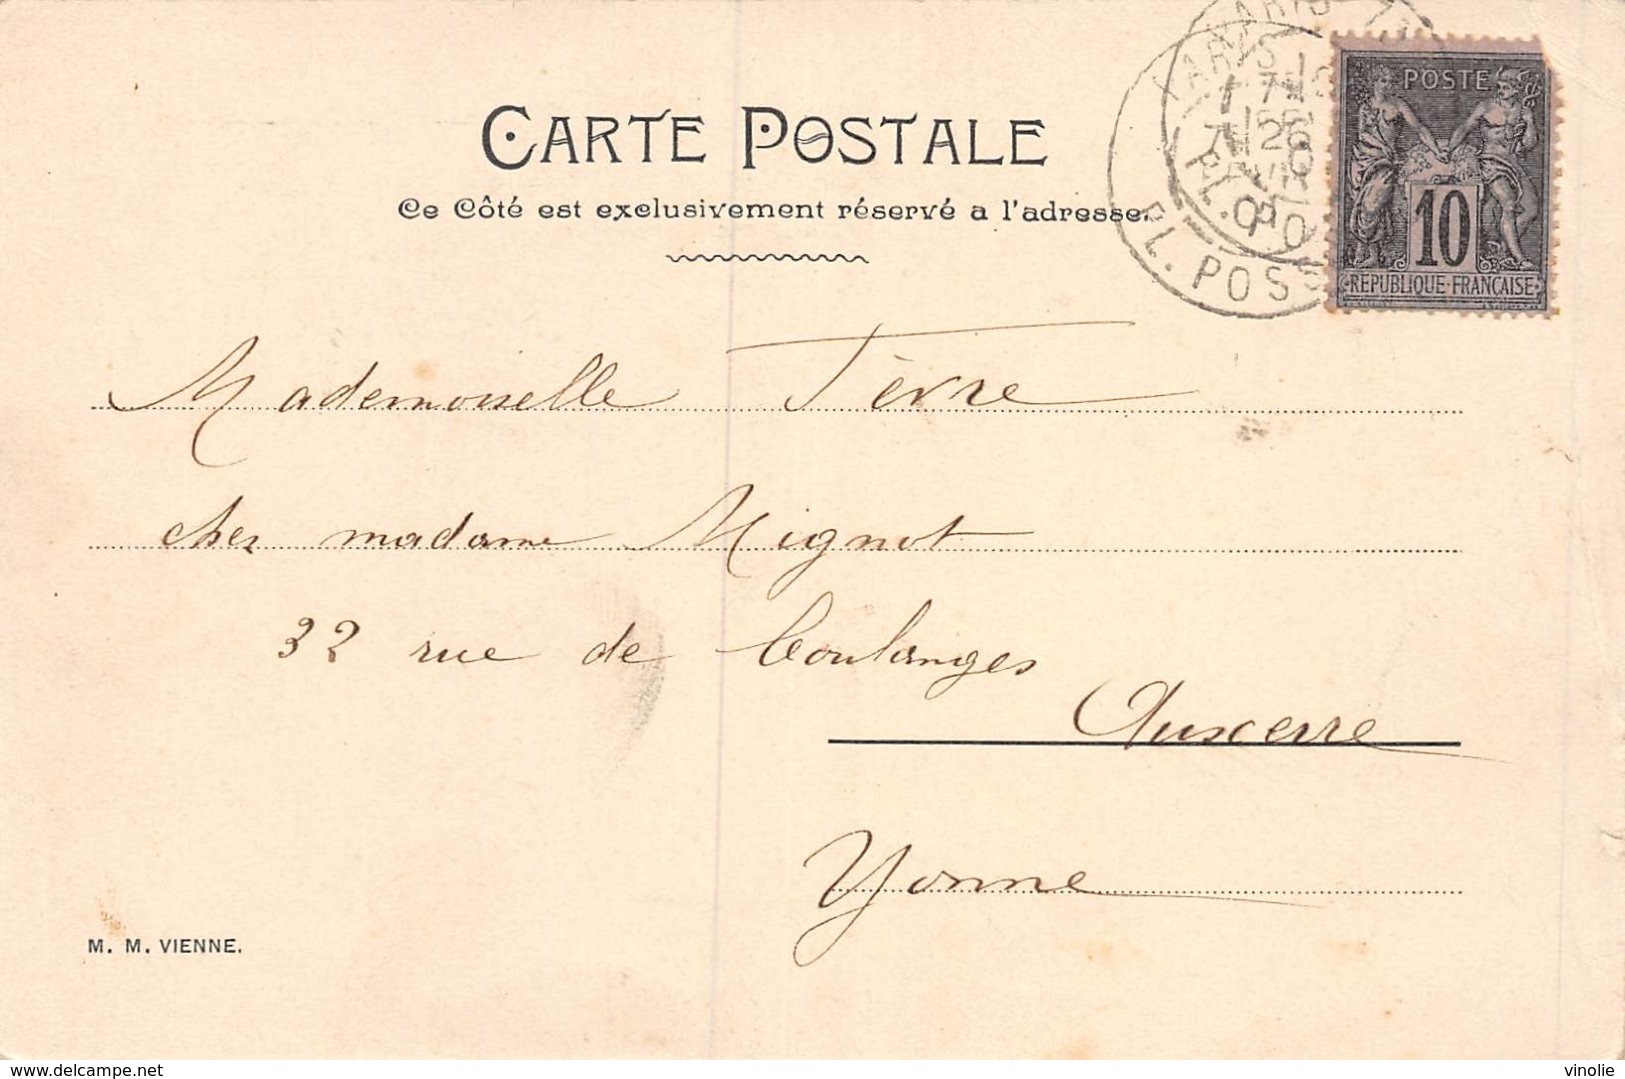 CARTE POSTALE
Ce Côté est exclusivement réservé a l'adresse.
POSTE
10
REPUBLIQUE FRANÇAISE
PL. POS
Mademoiselle Tèvre
chez madame Mignot
32 rue de Coulanges
Auxerre
Yonne
M. M. VIENNE.
delcampe.net
vinolie